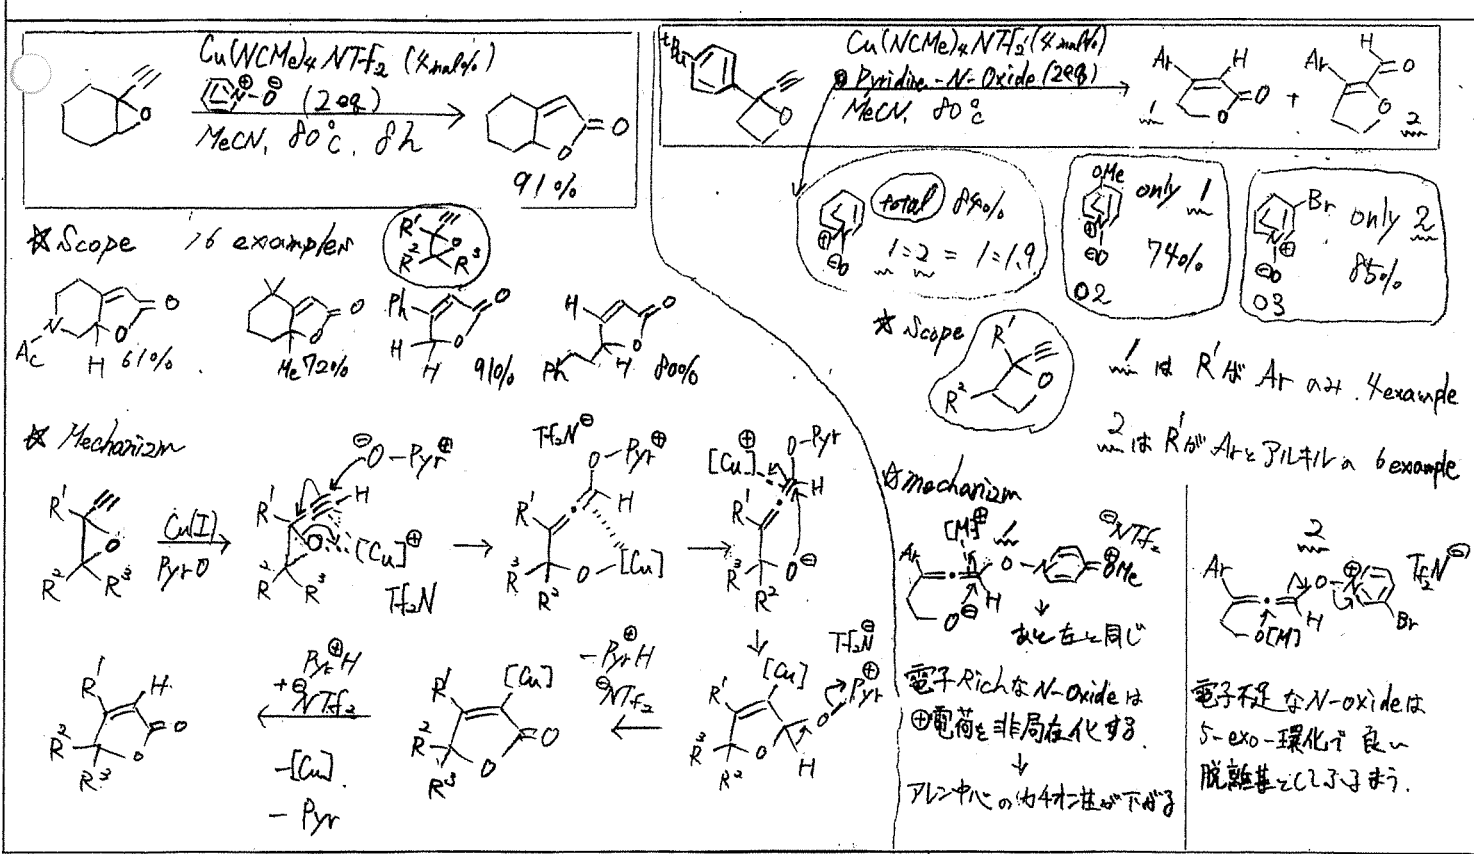 Cu(NCMe)₄NTf₂ (4mol%)
N⊕-O⊖ (2eq)
MeCN, 80℃, 8h
O
O
O
91%
☆ Scope 16 examples
R¹
O
R²
R³
N
Ac
H
O
O
61%
O
O
Me 72%
Ph
H
H
O
O
91%
H
Ph
H
O
O
80%
☆ Mechanizm
R¹
O
R²
R³
Cu(I)
PyrO
⊖O-Pyr⊕
R¹
H
O
[Cu]⊕
R²
R³
Tf₂N
Tf₂N⊖
O-Pyr⊕
H
R¹
R³
R²
O-[Cu]
[Cu]⊕
O-Pyr
H
R¹
R³
R²
O⊖
Tf₂N⊖
[Cu]
Pyr⊕
R¹
O
O
H
R³
R²
-Pyr⊕H
⊖NTf₂
R¹
[Cu]
R²
R³
O
O
Pyr⊕H
+ ⊖NTf₂
-[Cu]
- Pyr
R¹
H
R²
R³
O
O
tBu
O
Cu(NCMe)₄NTf₂ (4mol%)
Pyridine-N-Oxide (2eq)
MeCN, 80℃
Ar
H
O
O
1
+
Ar
H
O
O
2
N
⊕
⊖O
total 84%
1:2 = 1:1.9
OMe
N
⊕
⊖O
only 1
74%
O2
Br
N
⊕
⊖O
only 2
85%
O3
☆ Scope
R¹
O
R²
1は R¹が Ar のみ. 4example
2は R¹が Arとアルキルの 6example
☆mechanizm
1
[M]⊕
⊖NTf₂
Ar
O-N
⊕OMe
H
O⊖
↓
あと左と同じ
電子RichなN-Oxideは
⊕電荷を非局在化する.
↓
アレン中心のカチオン性が下がる
2
Tf₂N⊖
Ar
O-N⊕
H
Br
O[M]
電子不足なN-oxideは
5-exo-環化で良い
脱離基としてふるまう.